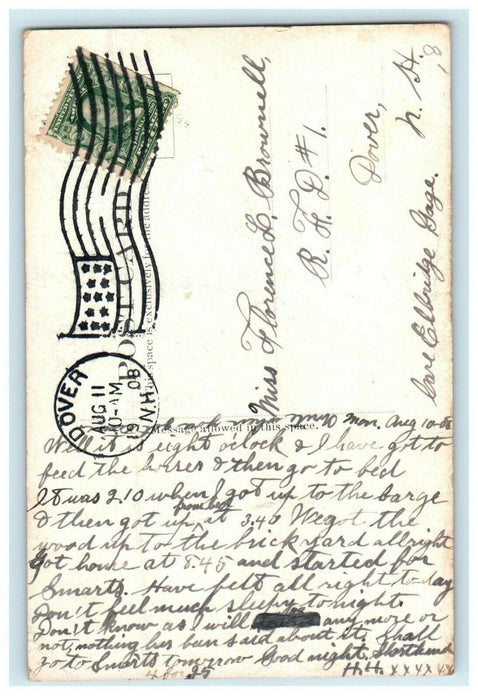 DOVER
AUG 11
10-AM
1908
N.H.
POST CARD
Miss Florence L. Brownell,
R. F. D. #1.
Dover,
N. H.
Care Elbridge Gage.
This space is exclusively for the address
Message allowed in this space.
Mon, Aug 10-08
Well it is eight o'clock & I have got to
feed the horses & then go to bed
It was 2.10 when I got up to the barge
from bed
& then got up at 3.40 We got the
wood up to the brickyard allright
Got home at 8.45 and started for
Smarts. Have felt all right to day
Don't feel much sleepy tonight.
Don't know as I will any more or
not, nothing has ben said about it. Shall
go to Smarts tomorrow Good night, Shorthand
H.H. xxxxxx